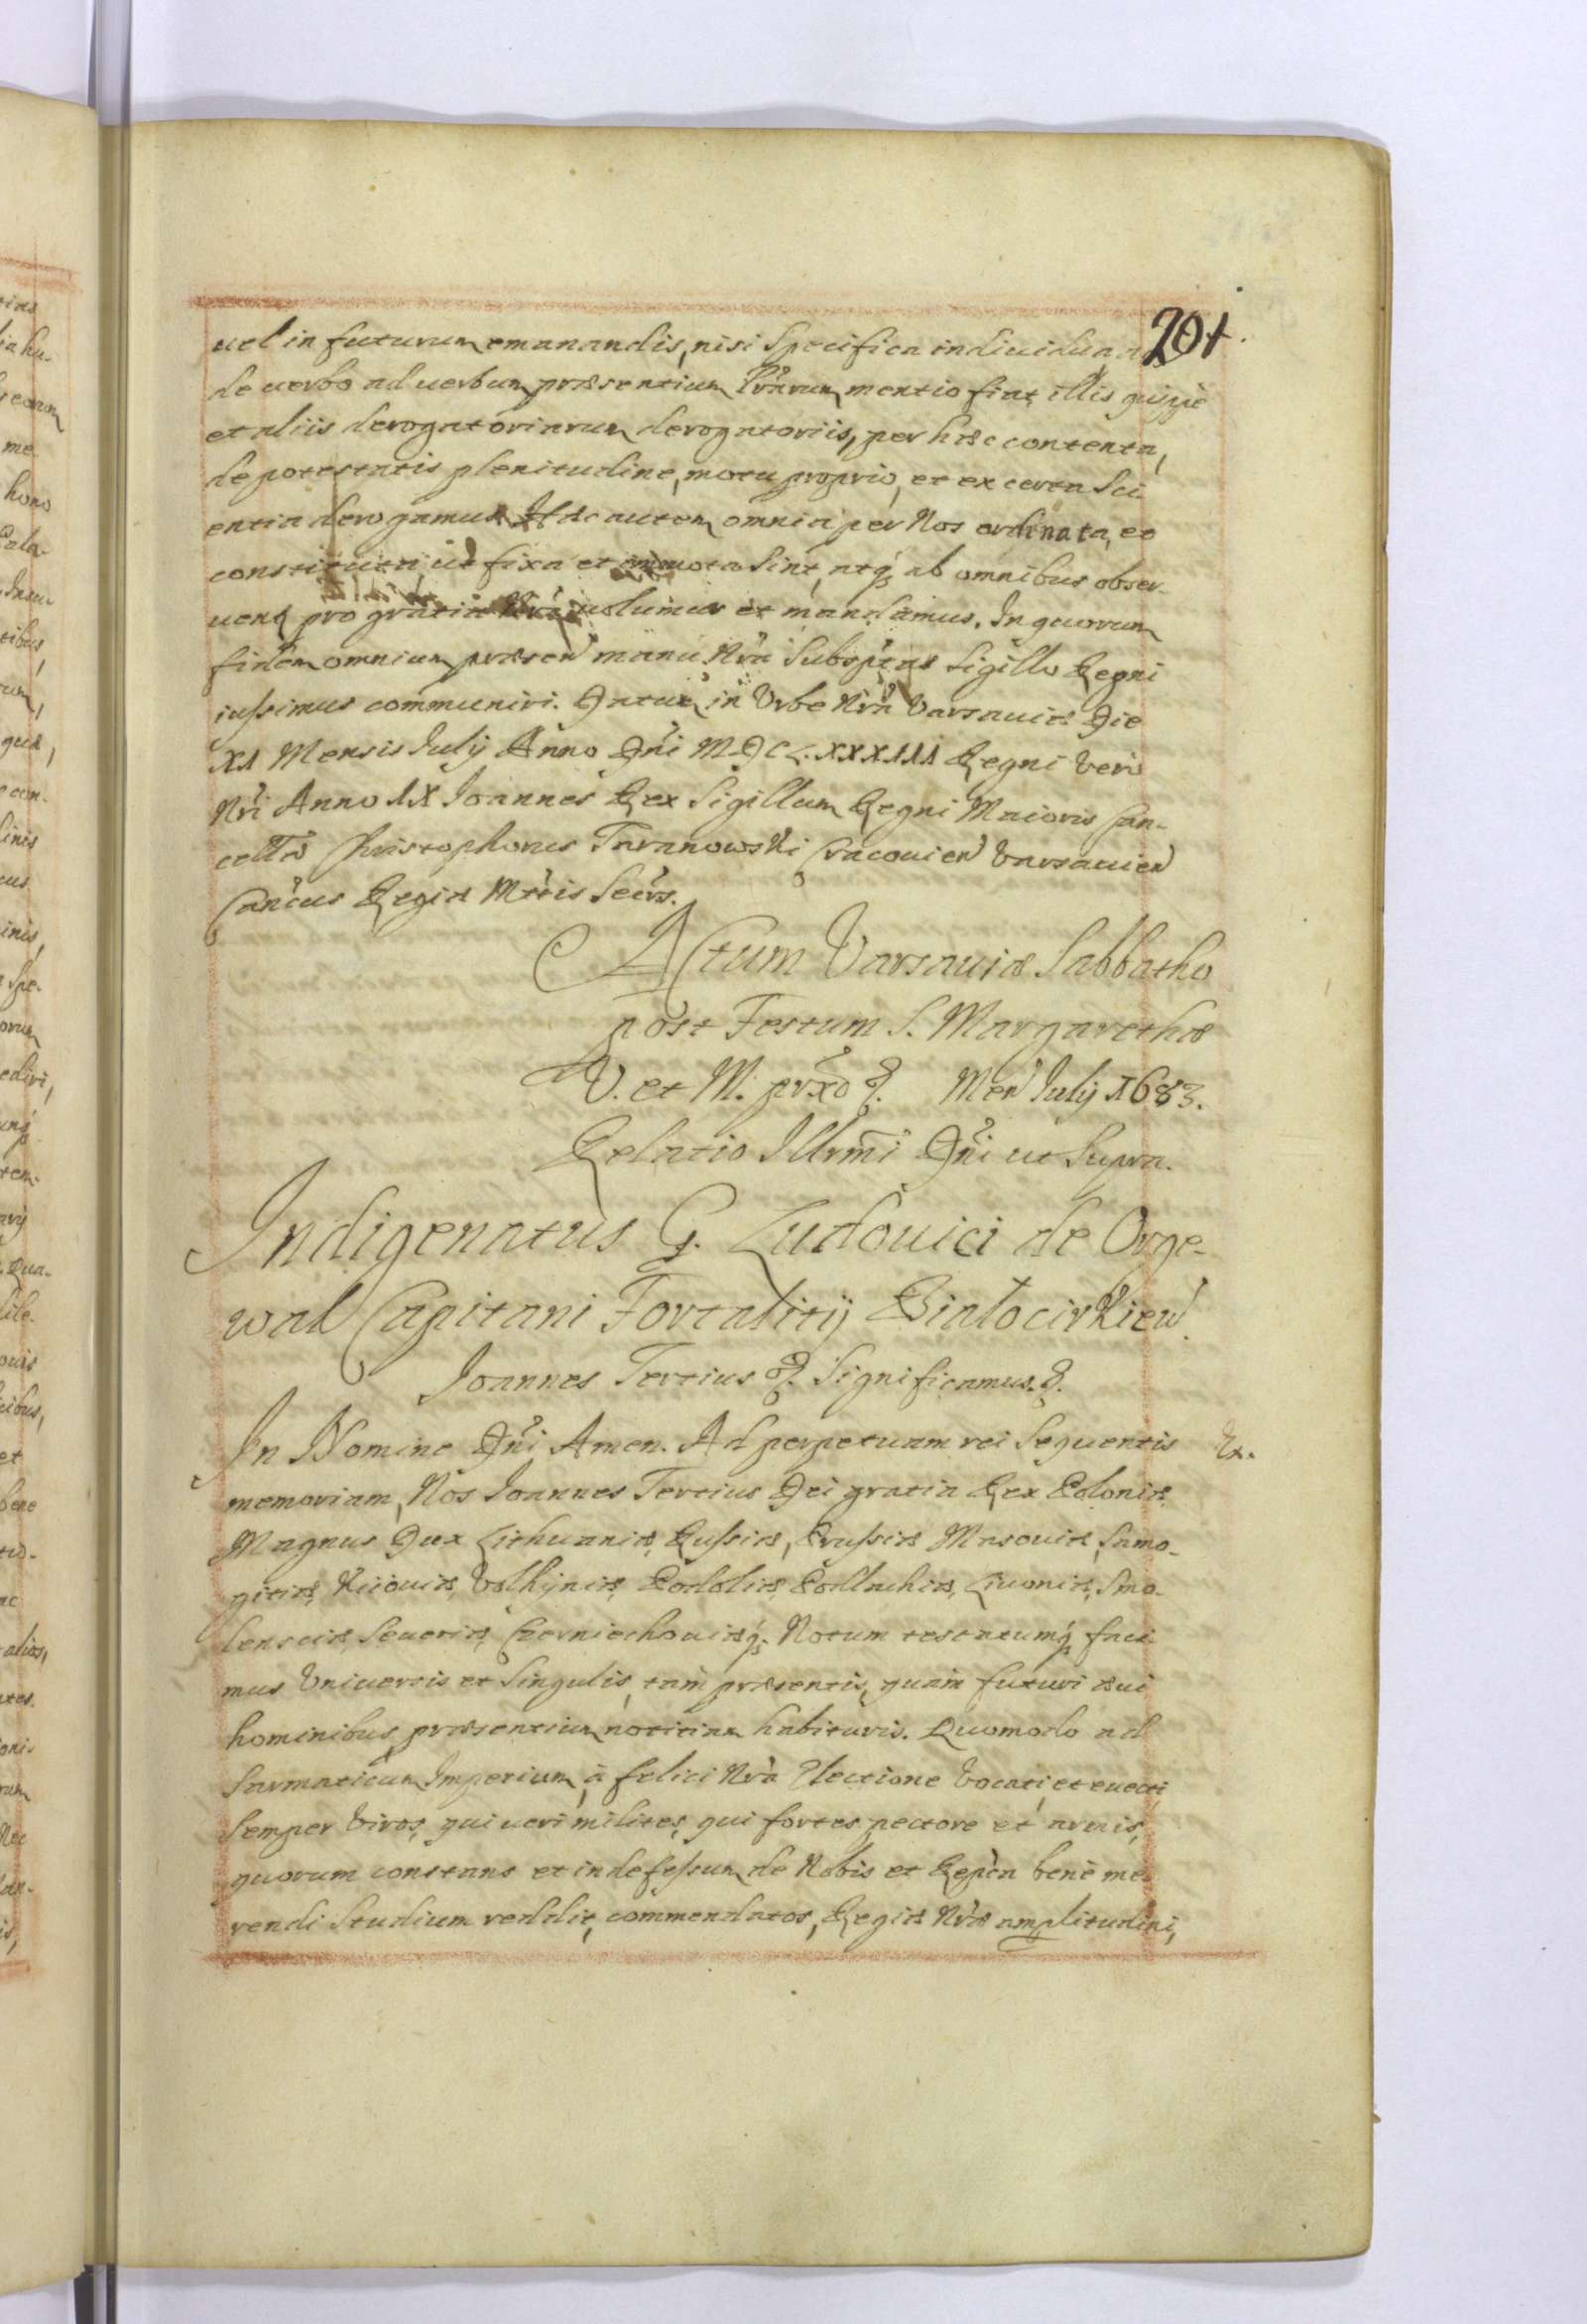 201.
uel in futurum emanandis, nisi Specifica indiuidua a
de uerbo ad uerbum præsentium Lrãrum mentio fiat, illis quippè
et aliis derogatoriarum derogatoriis, per hæc contenta,
de potestatis plenitudine, motu proprio, et ex certa Sci-
entia derogamus. Hæc autem omnia per Nos ordinata, et
constituta ut fixa et immota Sint, atq́ꝫ ab omnibus obser-
uent pro gratia Nrã uolumus et mandamus. In quorum
fidem omnium præsen manu Nrã Subsptas Sigillo Regni
iussimus communiri. Datux in Vrbe Nrã Varsauiæ Die
XI Mensis Iulij Anno Dñi MDCLXXXIII Regni Verò
Nri Anno IX Joannes Rex Sigillum Regni Maioris Can-
cellæ Christophorus Taranowski Cracouien Varsauien
Cancus Regiæ Mttis Secrs.
Actum Varsauiæ Sabbatho
post Festum S. Margarethæ
V. et M. prxõ &. Men Iulij 1683.
Relatio Illrmi Dñi ut Supra.
Indigenatus G. Ludouici de Orge-
wal Capitani Fortalitij Białocirkiew.
Joannes Tertius &. Significamus. &.
In Nomine Dñi Amen. Ad perpetuam rei Sequentis
memoriam, Nos Joannes Tertius Dei gratia Rex Poloniæ
Magnus Dux Lithuaniæ, Russiæ, Prussiæ Masouiæ, Samo-
gitiæ, Kiiouiæ, Volhyniæ, Podoliæ, Podlachiæ, Liuoniæ, Smo-
lensciæ, Seueriæ Czerniechouiæq́ꝫ. Notum testatumq́ꝫ faci-
mus Vniuersis et Singulis, tam præsentis, quam futuri æui
hominibus, præsentium notitiam habituris. Quomodo ad
Sarmaticum Imperium, à felici Nrã Electione Vocati, et euecti,
Semper Viros, qui ueri milites, qui fortes pectore et armis,
quorum constans et indefessum de Nobis et Repca benè me-
rendi Studium reddit, commendatos, Regiæ Nræ amplitudini,